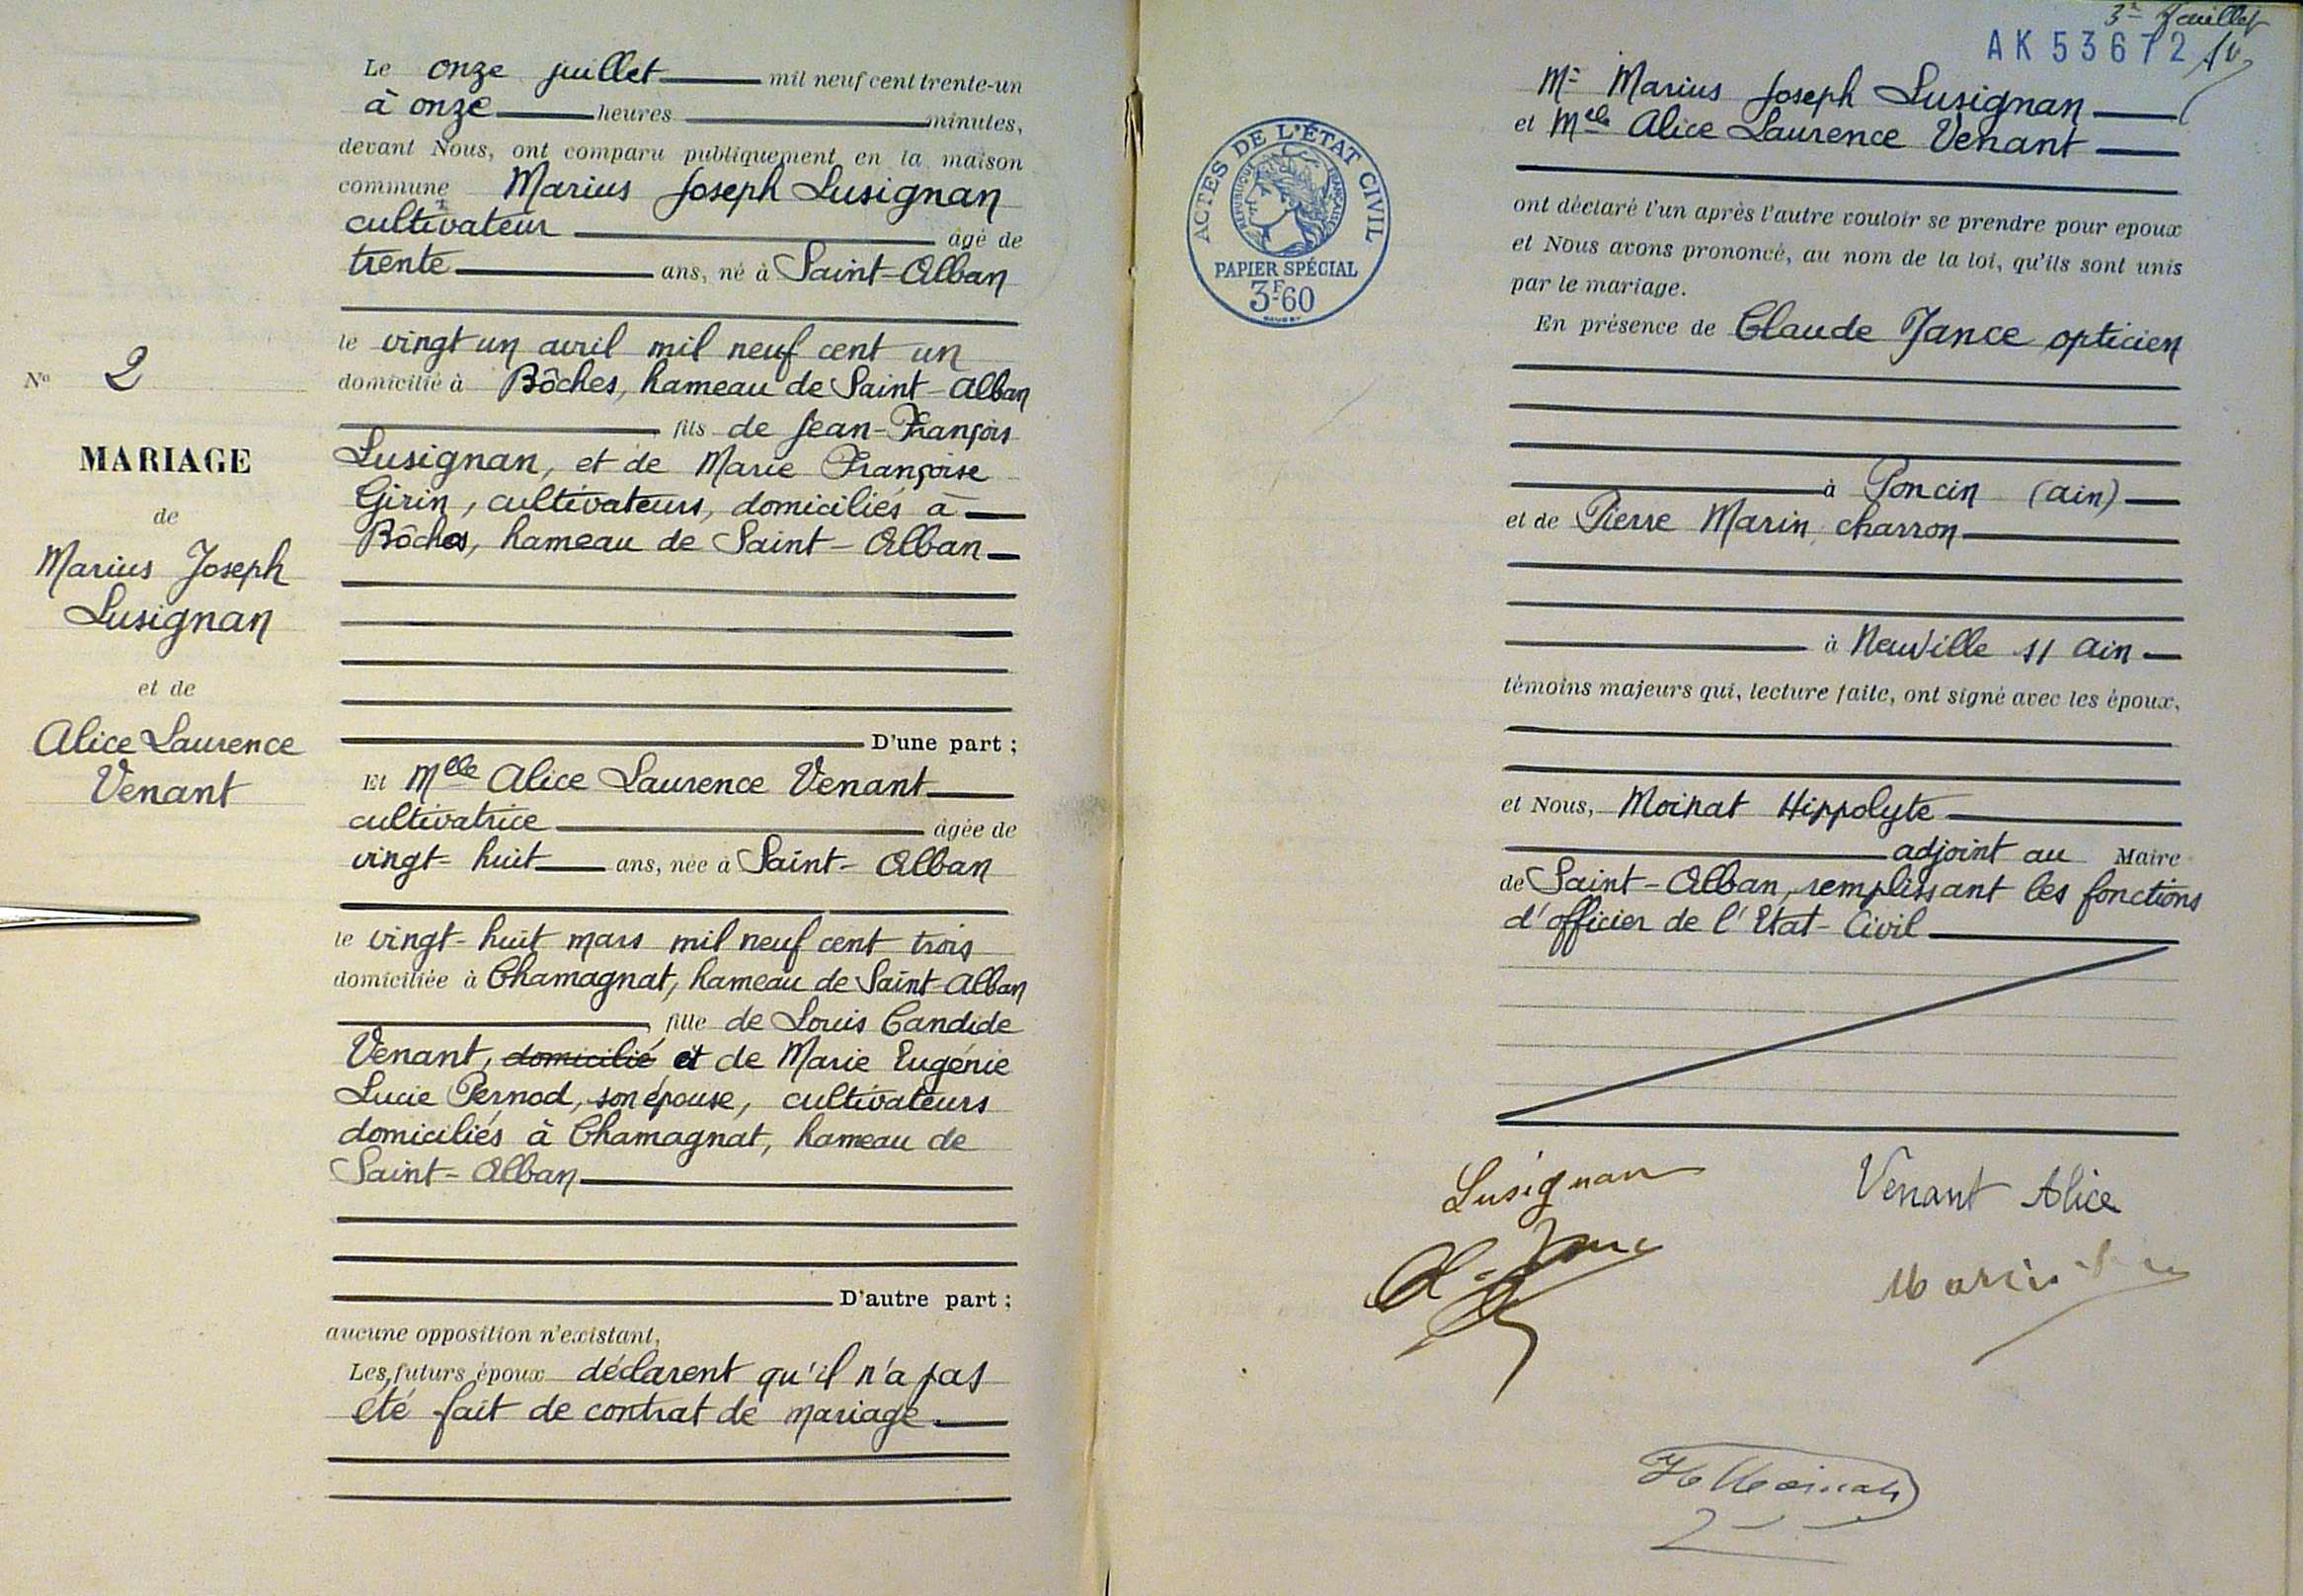 N° 2
MARIAGE
de
Marius Joseph
Lusignan
et de
Alice Laurence
Venant
Le onze juillet mil neuf cent trente-un
à onze heures minutes,
devant Nous, ont comparu publiquement en la maison
commune Marius Joseph Lusignan
cultivateur âgé de
trente ans, né à Saint-Alban
le vingt un avril mil neuf cent un
domicilié à Bôches, hameau de Saint-Alban
fils de Jean-François
Lusignan, et de Marie Françoise
Girin, cultivateurs, domiciliés à
Bôches, hameau de Saint-Alban
D'une part ;
Et Melle Alice Laurence Venant
cultivatrice âgée de
vingt-huit ans, née à Saint-Alban
le vingt-huit mars mil neuf cent trois
domiciliée à Chamagnat, hameau de Saint-Alban
fille de Louis Candide
Venant, domicilié et de Marie Eugénie
Lucie Pernod, son épouse, cultivateurs
domiciliés à Chamagnat, hameau de
Saint-Alban
D'autre part ;
aucune opposition n'existant,
Les futurs époux déclarent qu'il n'a pas
été fait de contrat de mariage.
3e feuillet
AK 53672
ACTES DE L'ÉTAT CIVIL
RÉPUBLIQUE FRANÇAISE
PAPIER SPÉCIAL
3F60
Mr Marius Joseph Lusignan
et Melle Alice Laurence Venant
ont déclaré l'un après l'autre vouloir se prendre pour epoux
et Nous avons prononcé, au nom de la loi, qu'ils sont unis
par le mariage.
En présence de Claude Jance opticien
à Poncin (ain)
et de Pierre Marin, charron
à Neuville s/ ain
témoins majeurs qui, lecture faite, ont signé avec les époux,
et Nous, Moinat Hippolyte
adjoint au Maire
de Saint-Alban, remplissant les fonctions
d'officier de l'Etat-Civil
Lusignan
Venant Alice
Marin
H Moinat